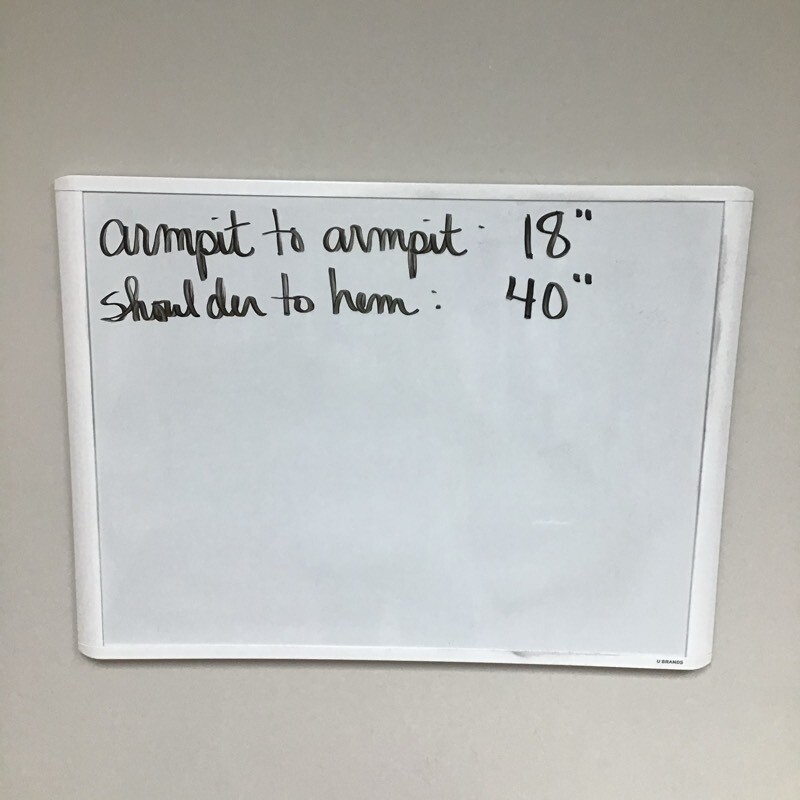 armpit to armpit: 18"
shoulder to hem: 40"
U BRANDS